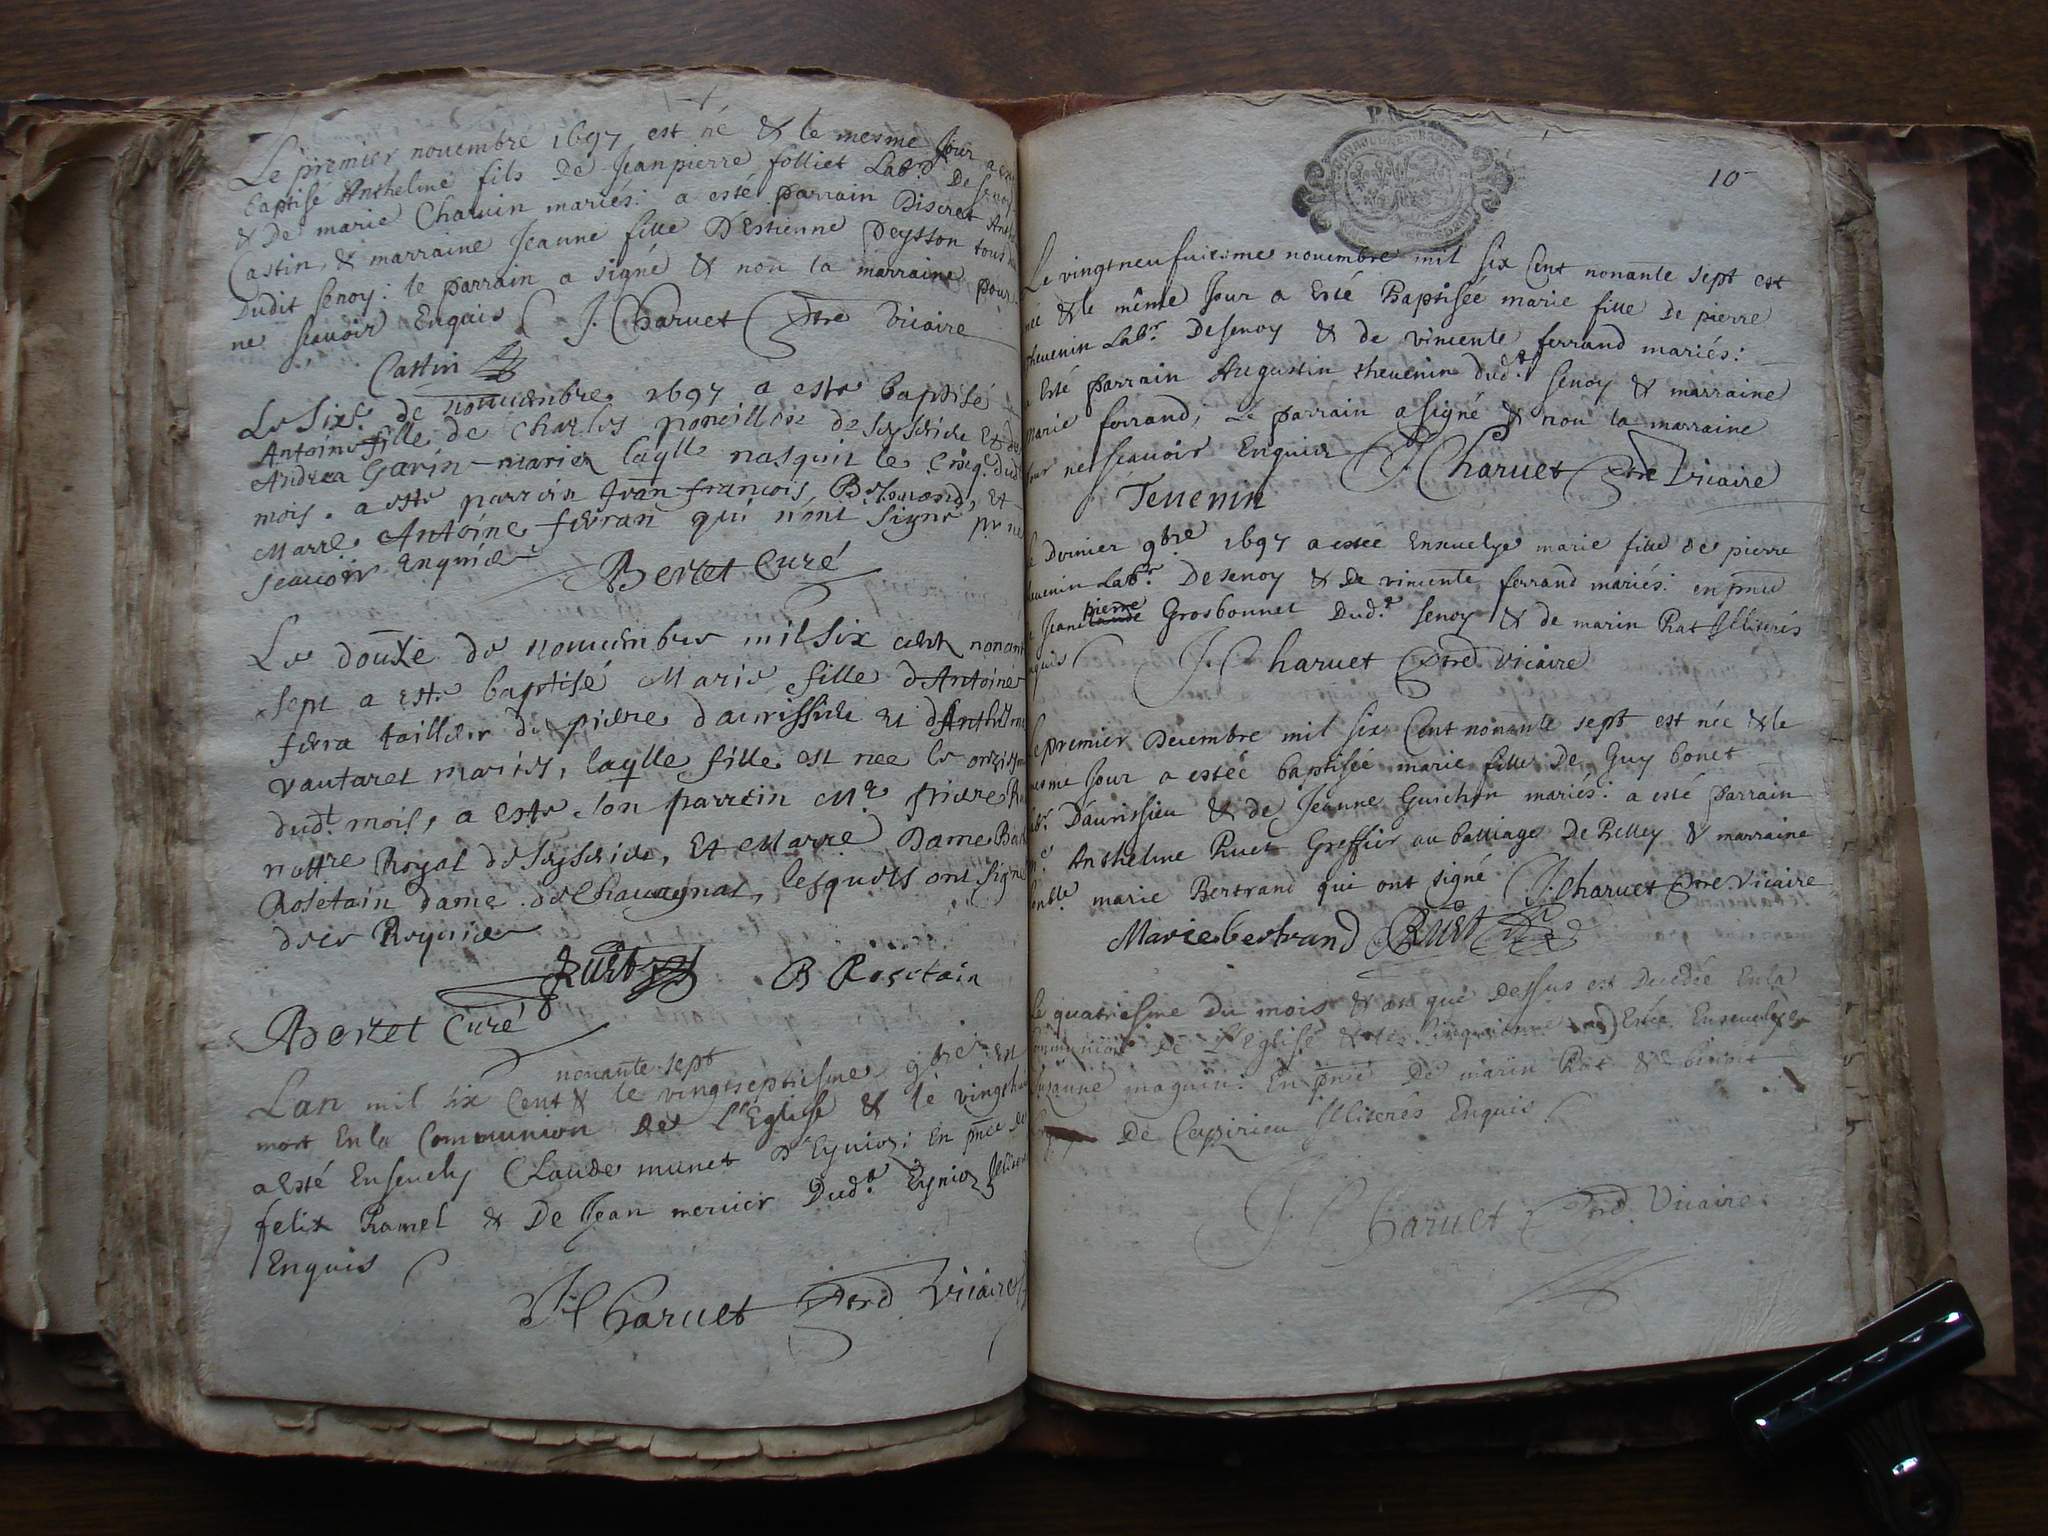 Le premier novembre 1697 est né & le mesme Jour a esté
baptisé Anthelme fils de Jeanpierre folliet Lab.r De Senoy
& De marie Charuin mariés: a esté parrain Discret Anth
Castin, & marraine Jeanne fille D'Estienne Peysson tous
Dudit Senoy: le parrain a signé & non la marraine pour
ne scauoir Enquis J. Charuet ptre vicaire
Castin
Le Sixe de nouuembre 1697 a este baptisé
Antoine fille de Charles poncillon de Seysirieu Et de
Andrea Garin mariez laqlle nasquit le cinqe dud
mois. a este parrin Jean francois Belmond, Et
Marre Antoine ferran qui n'ont signé pr ne
scauoir Enquis
Bertet Curé
Le douxe de nouuembre mil six cent nonant
sept a este baptisé Marie fille d'Antoine
ferra tailleur de pierre d'aurissieu et d'Anthelme
vautaret mariés, laqlle fille est nee le onziesme
dudt mois, a este son parrein Mr pierre
nottre Royal de Seyssieu, Et Marre Dame
Rosetain dame de Chauagnat, lesquels ont signé
de ce Requis
Ruet B Rosetain
Bertet Curé
nonante sept
Lan mil six Cent & le vingtseptiesme 9bre est
mort En la Communion De l'Eglise & le vingthui
a Esté Enseuely Claude munet D'Eynioz: En pnce de
felix Ramel & De Jean mercier Dud.t Eynioz Illiterés
Enquis
J. Charuet ptre Vicaire
10
Le vingtneufuiesme novembre mil six Cent nonante sept est
née & le même Jour a Esté Baptisée marie fille De pierre
thevenin Lab.r De Senoy & de vincente ferrand mariés:
a Esté parrain Augustin thevenin dud.t Senoy & marraine
marie ferrand, Le parrain a signé & non la marraine
pour ne scauoir Enquis J. Charuet ptre Vicaire
Teuenin
Le Dernier 9bre 1697 a estée Enseuelye marie fille de pierre
thevenin Lab.r De Senoy & De vincente ferrand mariés: en pnce
pierre
de Jean Claude Grosbonnet Dud.t Senoy & de marin Rat Illiterés
Enquis J. Charuet ptre vicaire
Le premier Decembre mil six Cent nonante sept est née & le
mesme Jour a estée baptisée marie fille De Guy bonet
Lab.r D'aurissieu & de Jeanne Guichon mariés: a esté parrain
m.e Anthelme Ruet Greffier au balliage De Belley & marraine
honble marie Bertrand qui ont signé J. Charuet ptre vicaire
Marie bertrand Ruet
Le quatriesme Du mois & an que dessus est Decedée En la
Communion De l'Eglise & le Cinquiesme a Estée Enseuelye
Suzanne maguin: En pnce De marin Rat & benoit
De Ceyzirieu Illiterés Enquis
J. Charuet ptre Vicaire